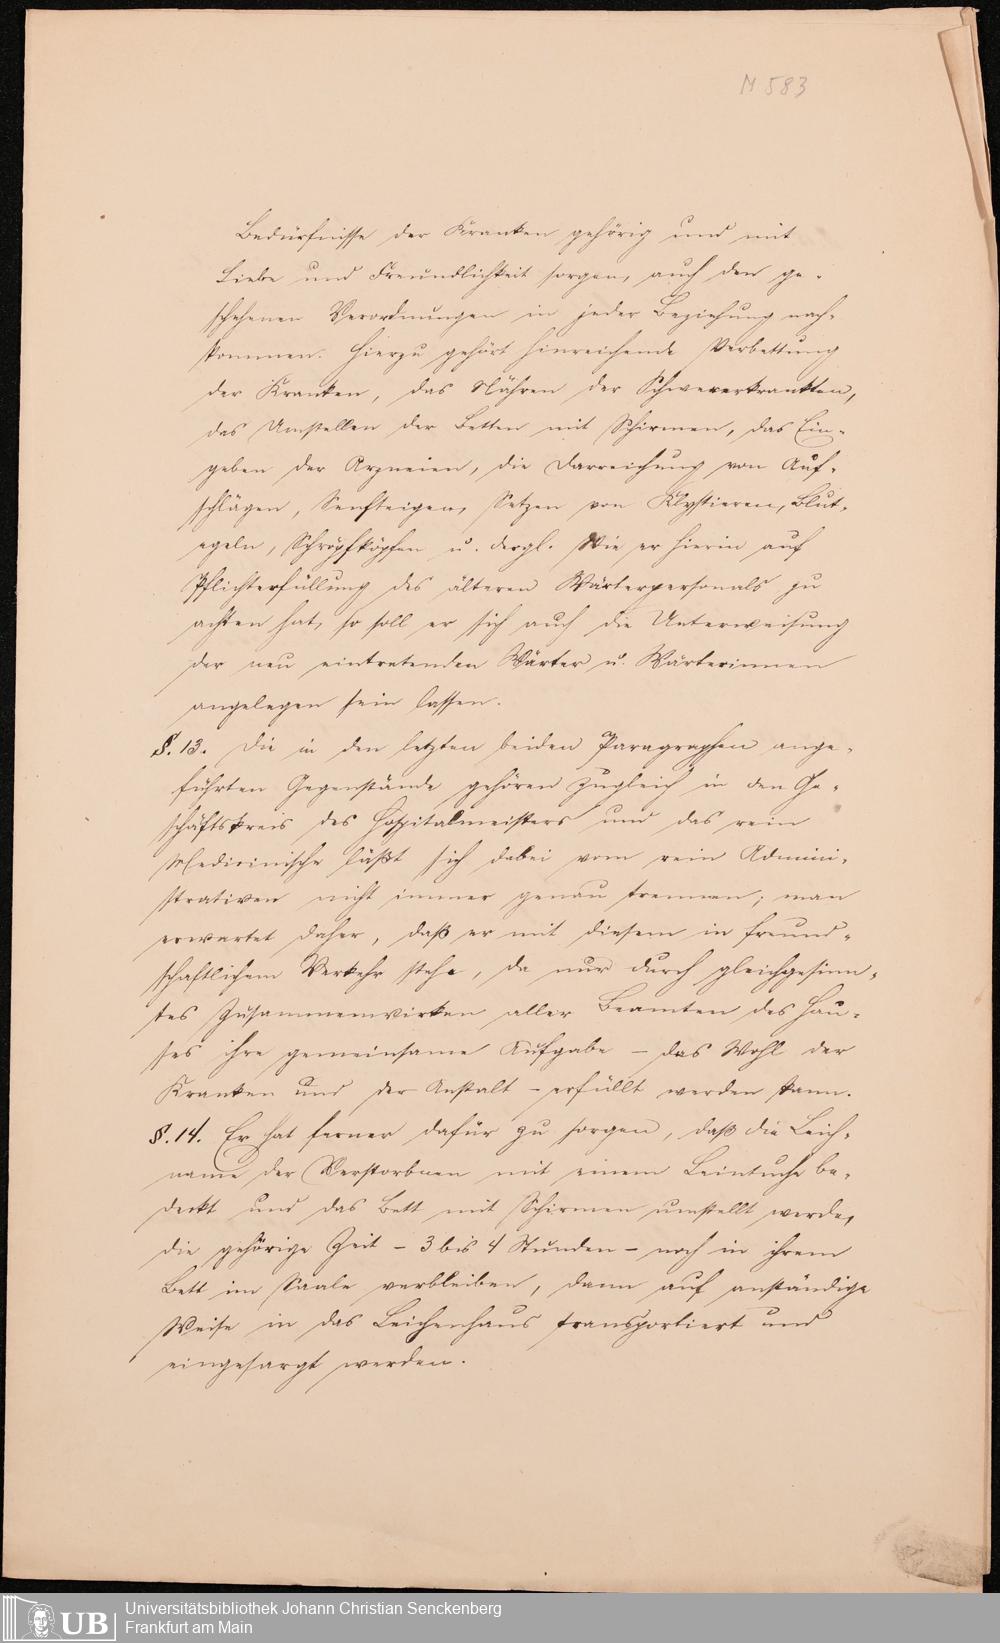 M 583
Bedürfnisse der Kranken gehörig und mit
Liebe und Freundlichkeit sorgen, auch den ge-
schehenen Verordnungen in jeder Beziehung nach-
kommen. Hierzu gehört hinreichende Verbettung
der Kranken, das Nähren der Schwererkrankten,
das Umstellen der Betten mit Schirmen, das Ein-
geben der Arzneien, die Darreichung von Auf-
schlägen, Senfteigen, Setzen von Klystieren, Blut-
egeln, Schröpfköpfen u. dergl. Wie er hierin auf
Pflichterfüllung des älteren Wärterpersonals zu
achten hat, so soll er sich auch die Unterweisung
der neu eintretenden Wärter u. Wärterinnen
angelegen sein lassen.
§. 13. Die in den letzten beiden Paragraphen ange-
führten Gegenstände gehören zugleich in den Ge-
schäftskreis des Hospitalmeisters und das rein
Medicinische läßt sich dabei vom rein Admini-
strativen nicht immer genau trennen; man
erwartet daher, daß er mit diesem in freund-
schaftlichem Verkehr stehe, da nur durch gleichgesinn-
tes Zusammenwirken aller Beamten des Hau-
ses ihre gemeinsame Aufgabe – das Wohl der
Kranken und der Anstalt – erfüllt werden kann.
§. 14. Er hat ferner dafür zu sorgen, daß die Leich-
name der Verstorbnen mit einem Leintuche be-
deckt und das Bett mit Schirmen umstellt werde,
die gehörige Zeit – 3 bis 4 Stunden – noch in ihrem
Bett im Saale verbleiben, dann auf anständige
Weise in das Leichenhaus transportiert und
eingesargt werden.
UB
Universitätsbibliothek Johann Christian Senckenberg
Frankfurt am Main